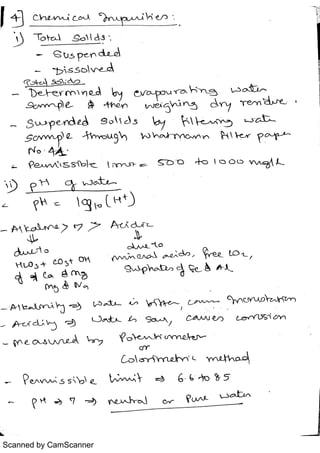 4] Chemical Impurities :
i) Total Solids :
- Suspended
- Dissolved
Total Solids
- Determined by evapourating water
sample & then weighing dry residue.
- Suspended solids by filtering water
sample through whatmann filter paper
No. 44.
- Permissible limit = 500 to 1000 mg/L
ii) pH of water
pH = log10 (H+)
- Alkaline > 7 > Acidic
due to due to
HCO3 + CO3 + OH mineral acids, free CO2,
of Ca & mg Sulphates of Fe & AL
mg & Na
- Alkalinity ⇒ Water is bitter, cause incrustation
- Acidity ⇒ Water is Sour, causes corrosion
- measured by Potentiometer
or
Colorimetric method
- Permissible limit ⇒ 6.6 to 8.5
- pH ⇒ 7 ⇒ neutral or Pure water
Scanned by CamScanner